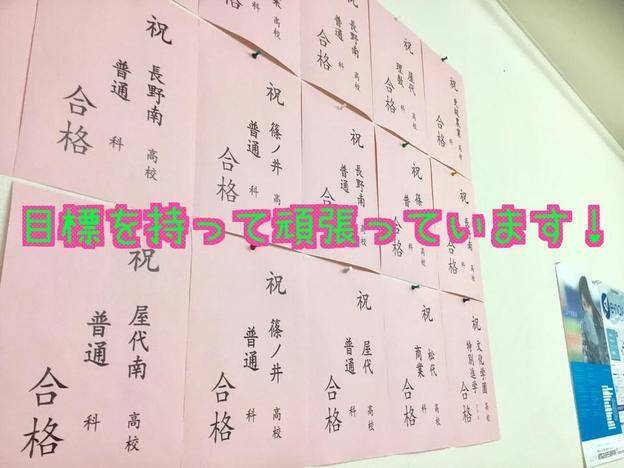 目標を持って頑張っています！
高校
祝
長野南 高校
普通 科
合格
祝
篠ノ井 高校
普通 科
合格
長野
普通 科
高校
合格
祝
屋代 高校
理数 科
合格
祝
高校
合格
祝
長野南 高校
普通 科
合格
祝
普通 科
合格
祝
科
合格
祝
屋代南 高校
普通 科
合格
祝
篠ノ井 高校
普通 科
合格
祝
屋代 高校
普通 科
合格
祝
松代 高校
商業 科
合格
祝
文化学園 高校
特別進学
合格